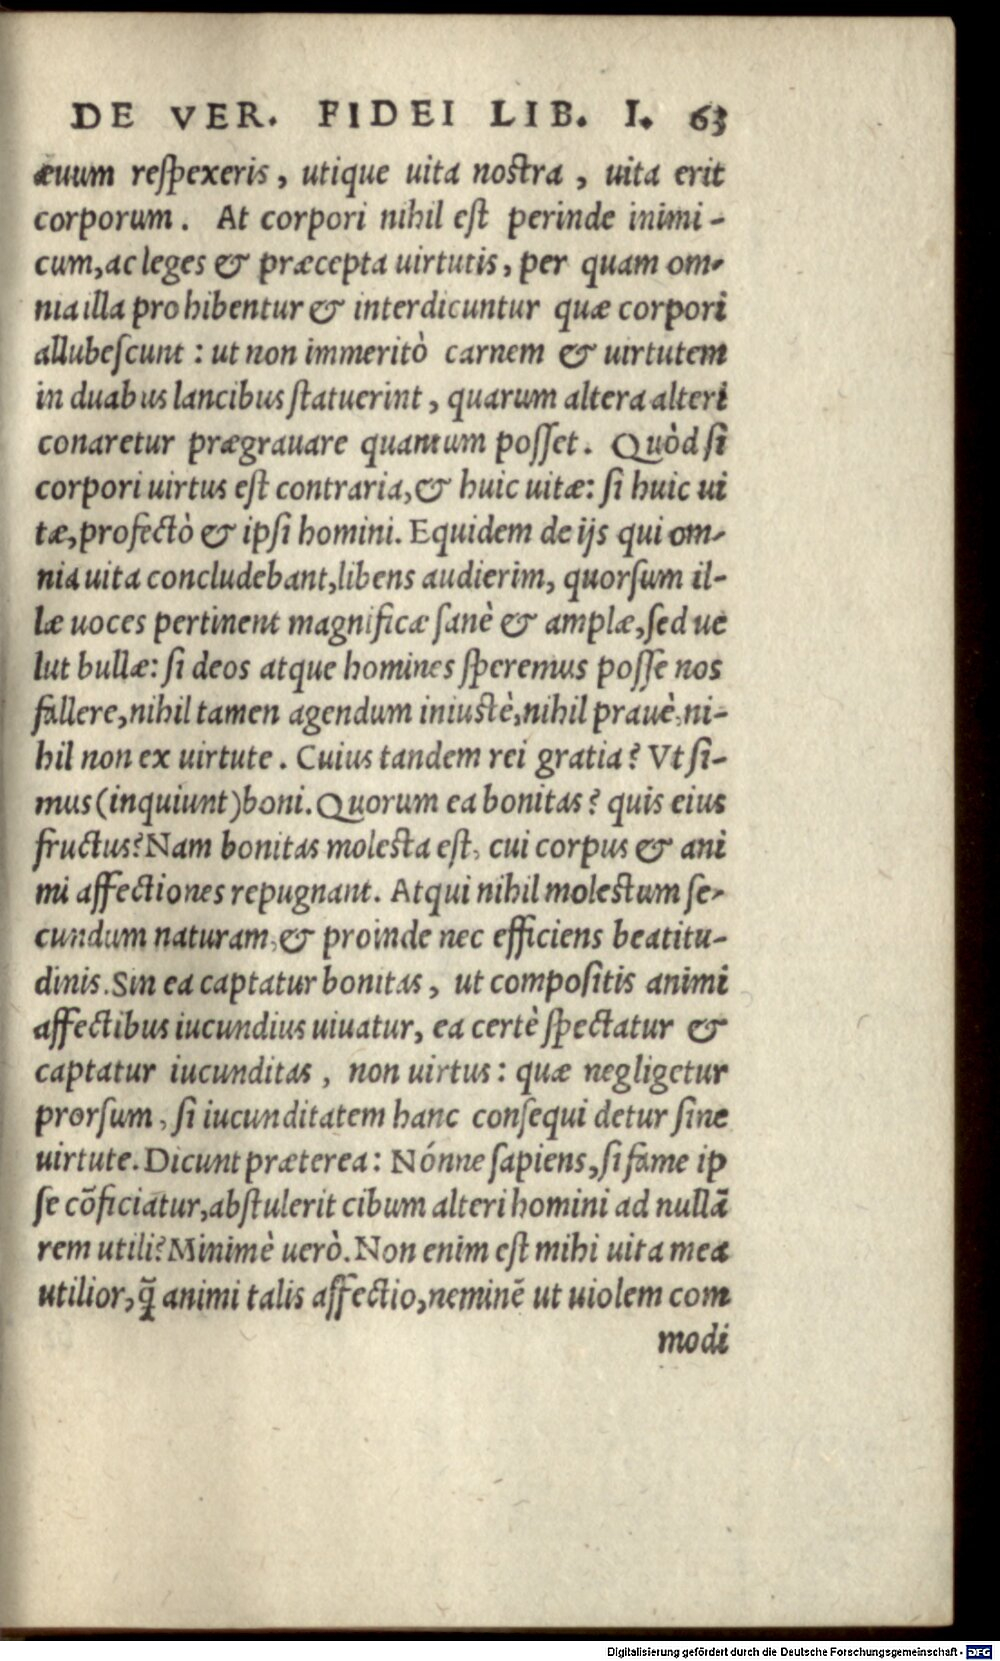 DE VER. FIDEI LIB. I. 63
æuum respexeris, utique uita nostra, uita erit
corporum. At corpori nihil est perinde inimi-
cum, ac leges & præcepta uirtutis, per quam om-
nia illa prohibentur & interdicuntur quæ corpori
allubescunt: ut non immeritò carnem & uirtutem
in duabus lancibus statuerint, quarum altera alteri
conaretur prægrauare quantum posset. Quòd si
corpori uirtus est contraria, & huic uitæ: si huic ui
tæ, profectò & ipsi homini. Equidem de ijs qui om-
nia uita concludebant, libens audierim, quorsum il-
læ uoces pertinent magnificæ sanè & amplæ, sed ue
lut bullæ: si deos atque homines speremus posse nos
fallere, nihil tamen agendum iniustè, nihil prauè, ni-
hil non ex uirtute. Cuius tandem rei gratia? Vt si-
mus (inquiunt) boni. Quorum ea bonitas? quis eius
fructus? Nam bonitas molesta est, cui corpus & ani
mi affectiones repugnant. Atqui nihil molestum se-
cundum naturam, & proinde nec efficiens beatitu-
dinis. Sin ea captatur bonitas, ut compositis animi
affectibus iucundius uiuatur, ea certè spectatur &
captatur iucunditas, non uirtus: quæ negligetur
prorsum, si iucunditatem hanc consequi detur sine
uirtute. Dicunt præterea: Nónne sapiens, si fame ip
se cōficiatur, abstulerit cibum alteri homini ad nullā
rem utili? Minimè uerò. Non enim est mihi uita mea
utilior, q̃ animi talis affectio, neminē ut uiolem com
modi
Digitalisierung gefördert durch die Deutsche Forschungsgemeinschaft - DFG